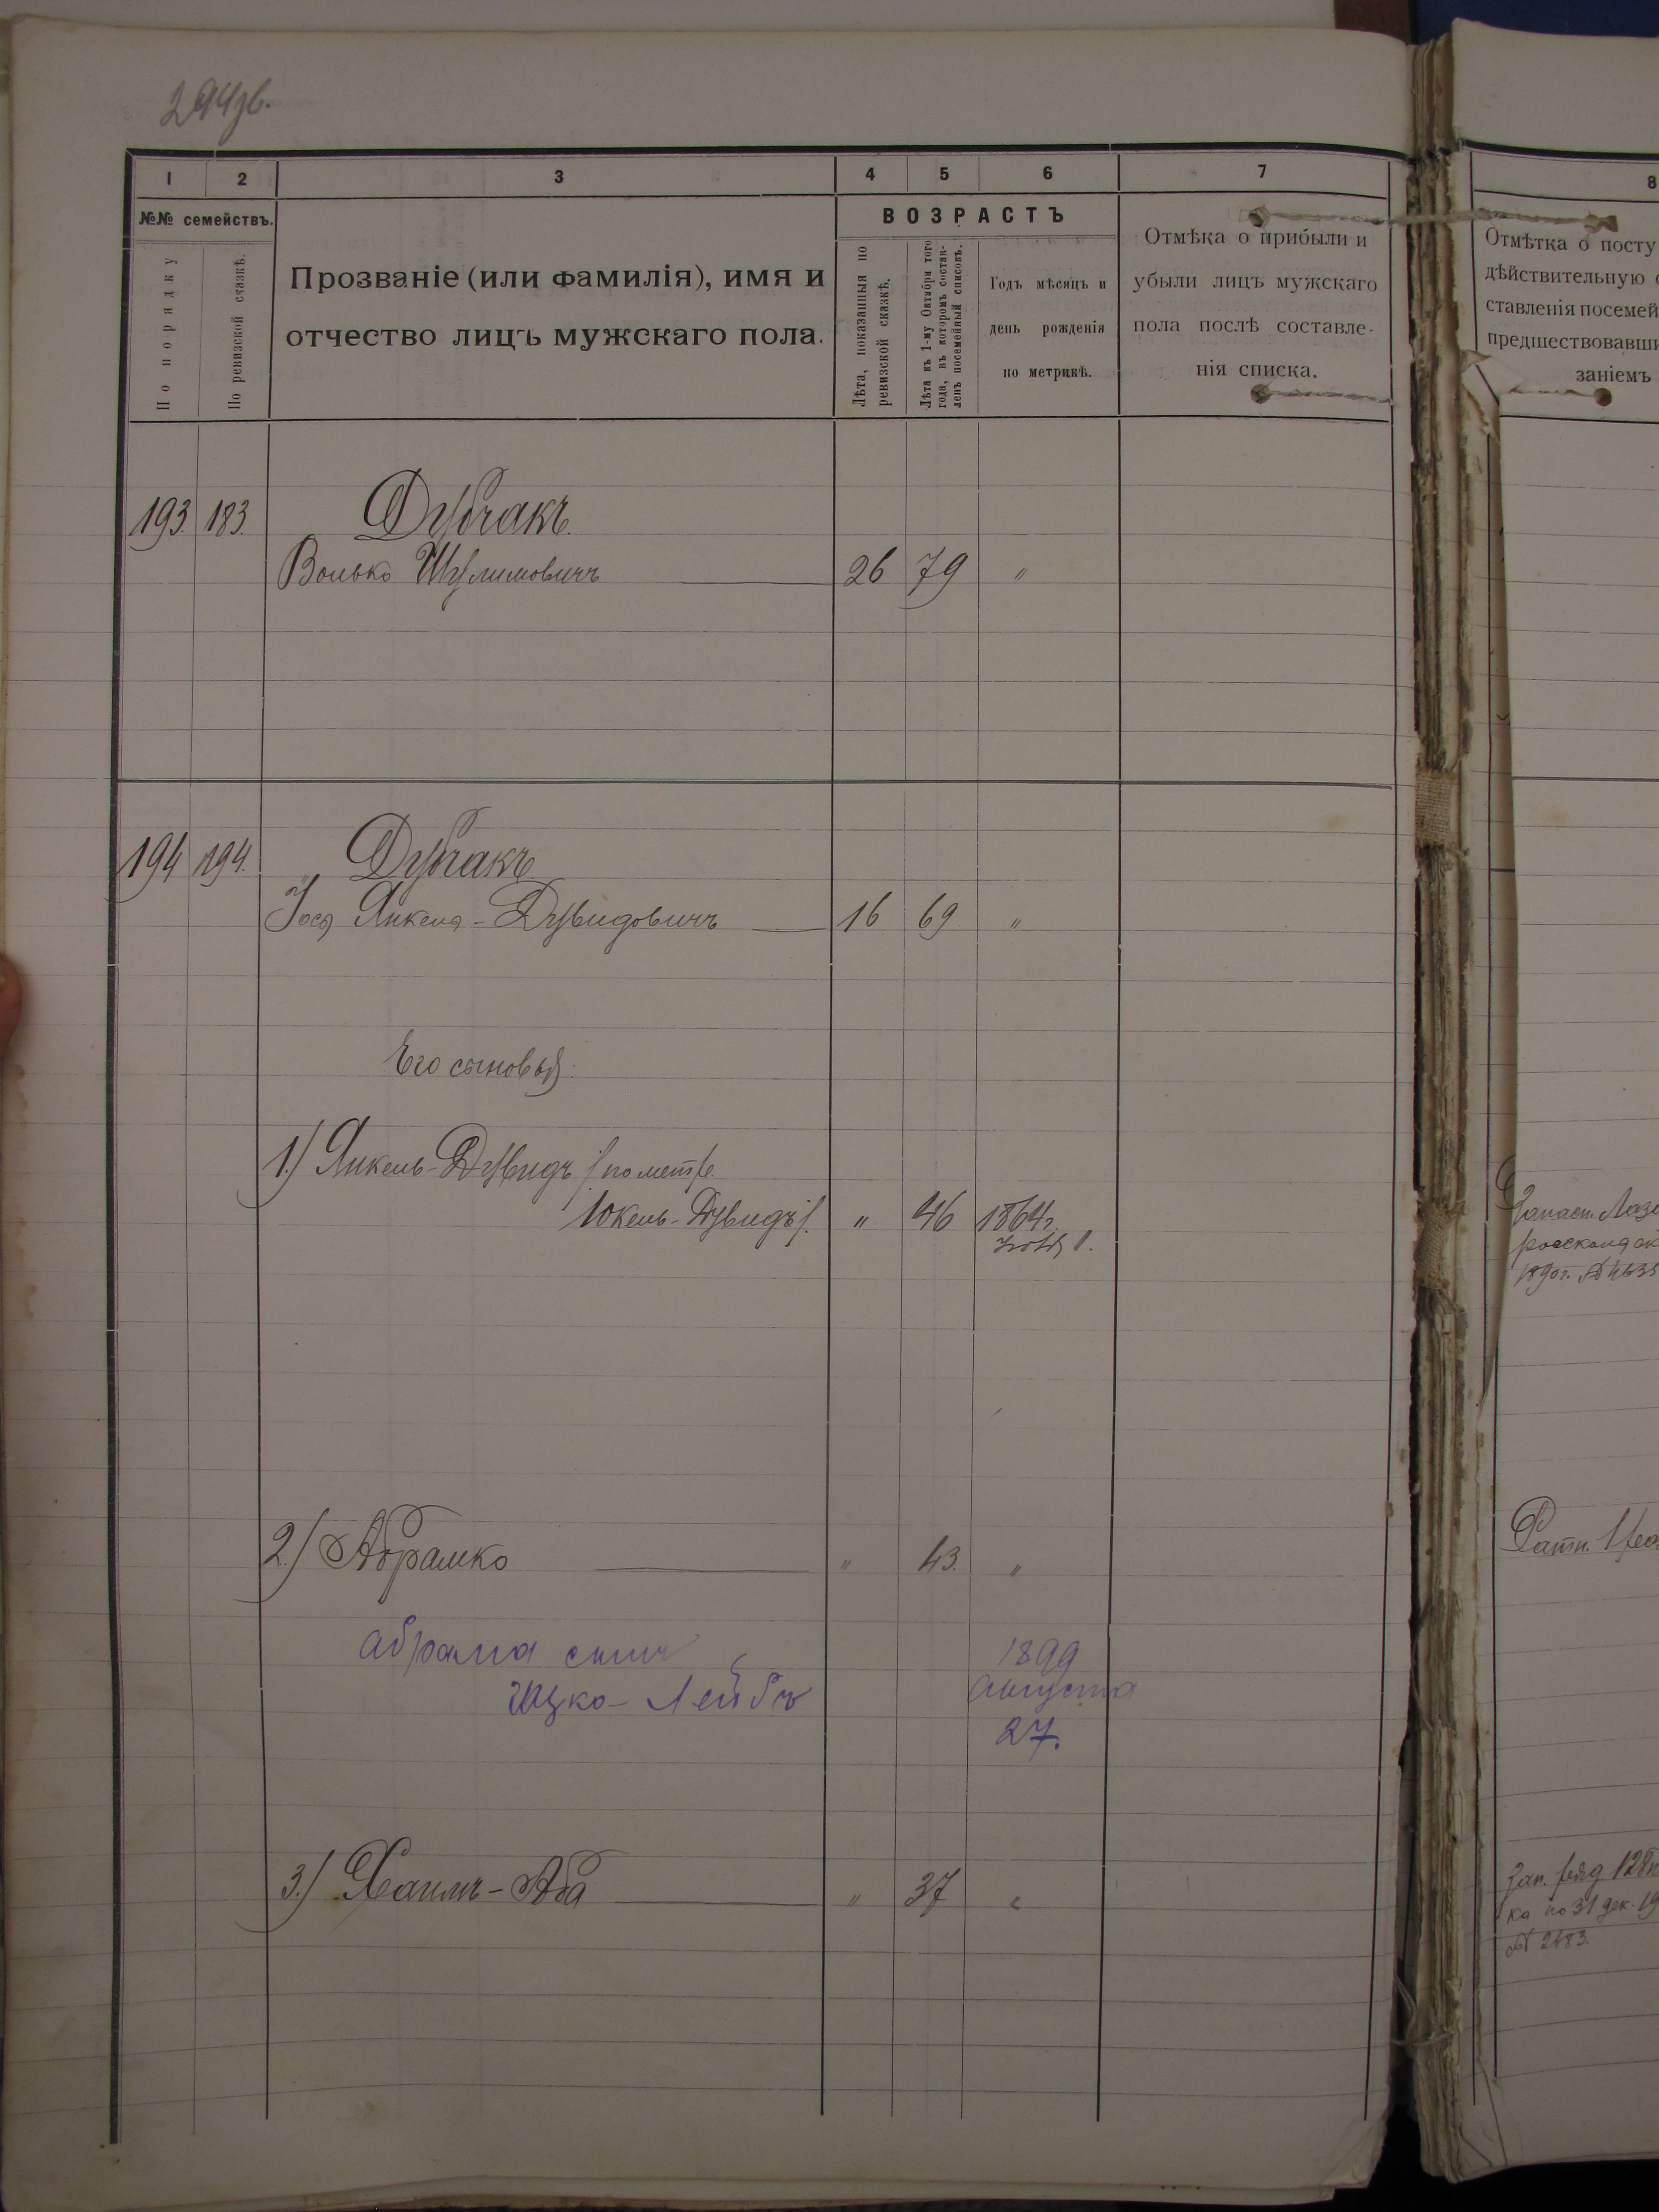 294зв.
1 2 3 4 5 6 7
№№ семействъ.
По порядку
По ревизской сказкѣ.
Прозваніе (или фамилія), имя и
отчество лицъ мужскаго пола.
ВОЗРАСТЪ
Лѣта, показанныя по
ревизской сказкѣ.
Лѣта къ 1-му Октября того
года, въ которомъ состав-
ленъ посемейный списокъ.
Годъ мѣсяцъ и
день рожденія
по метрикѣ.
Отмѣка о прибыли и
убыли лицъ мужскаго
пола послѣ составле-
нія списка.
8
Отмѣтка о посту
дѣйствительную
ставленія посемей
предшествовавши
заніемъ
193. 183. Дубчакъ.
Волько Шулимовичъ 26 79 "
194 194. Дубчакъ
Іося Янкель-Дувидовичъ 16 69 "
Его сыновья:
1.) Янкель-Дувидъ /по метр.
Юкель-Дувидъ/. " 46 1864г.
1.
2.) Абрамко " 43. "
Абрама сынъ 1899
Ицко-Лейбъ августа
27.
3.) Хаимъ-Аба " 37 "
Запасн.
1890г. №
Ратн. 1
Зап. ряд 128
ка по 31 дек. 19
№ 2683.